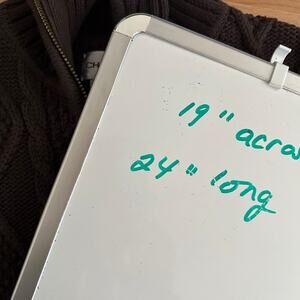 CH
19" acro
24" long